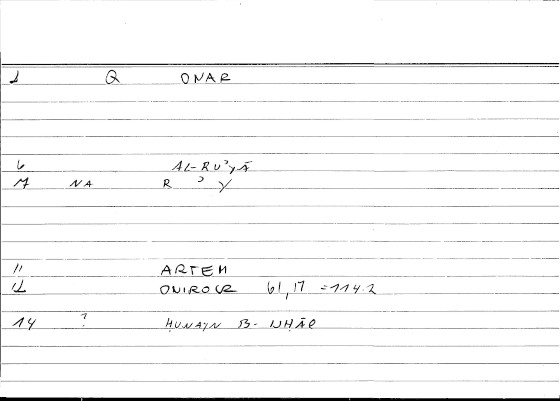 1 Q ONAR
6 AL-RUʾYĀ
7 NA R ʾ Y
11 ARTEM
12 ONIROCR 61,17 = 114.2
14 ? ḤUNAYN B-